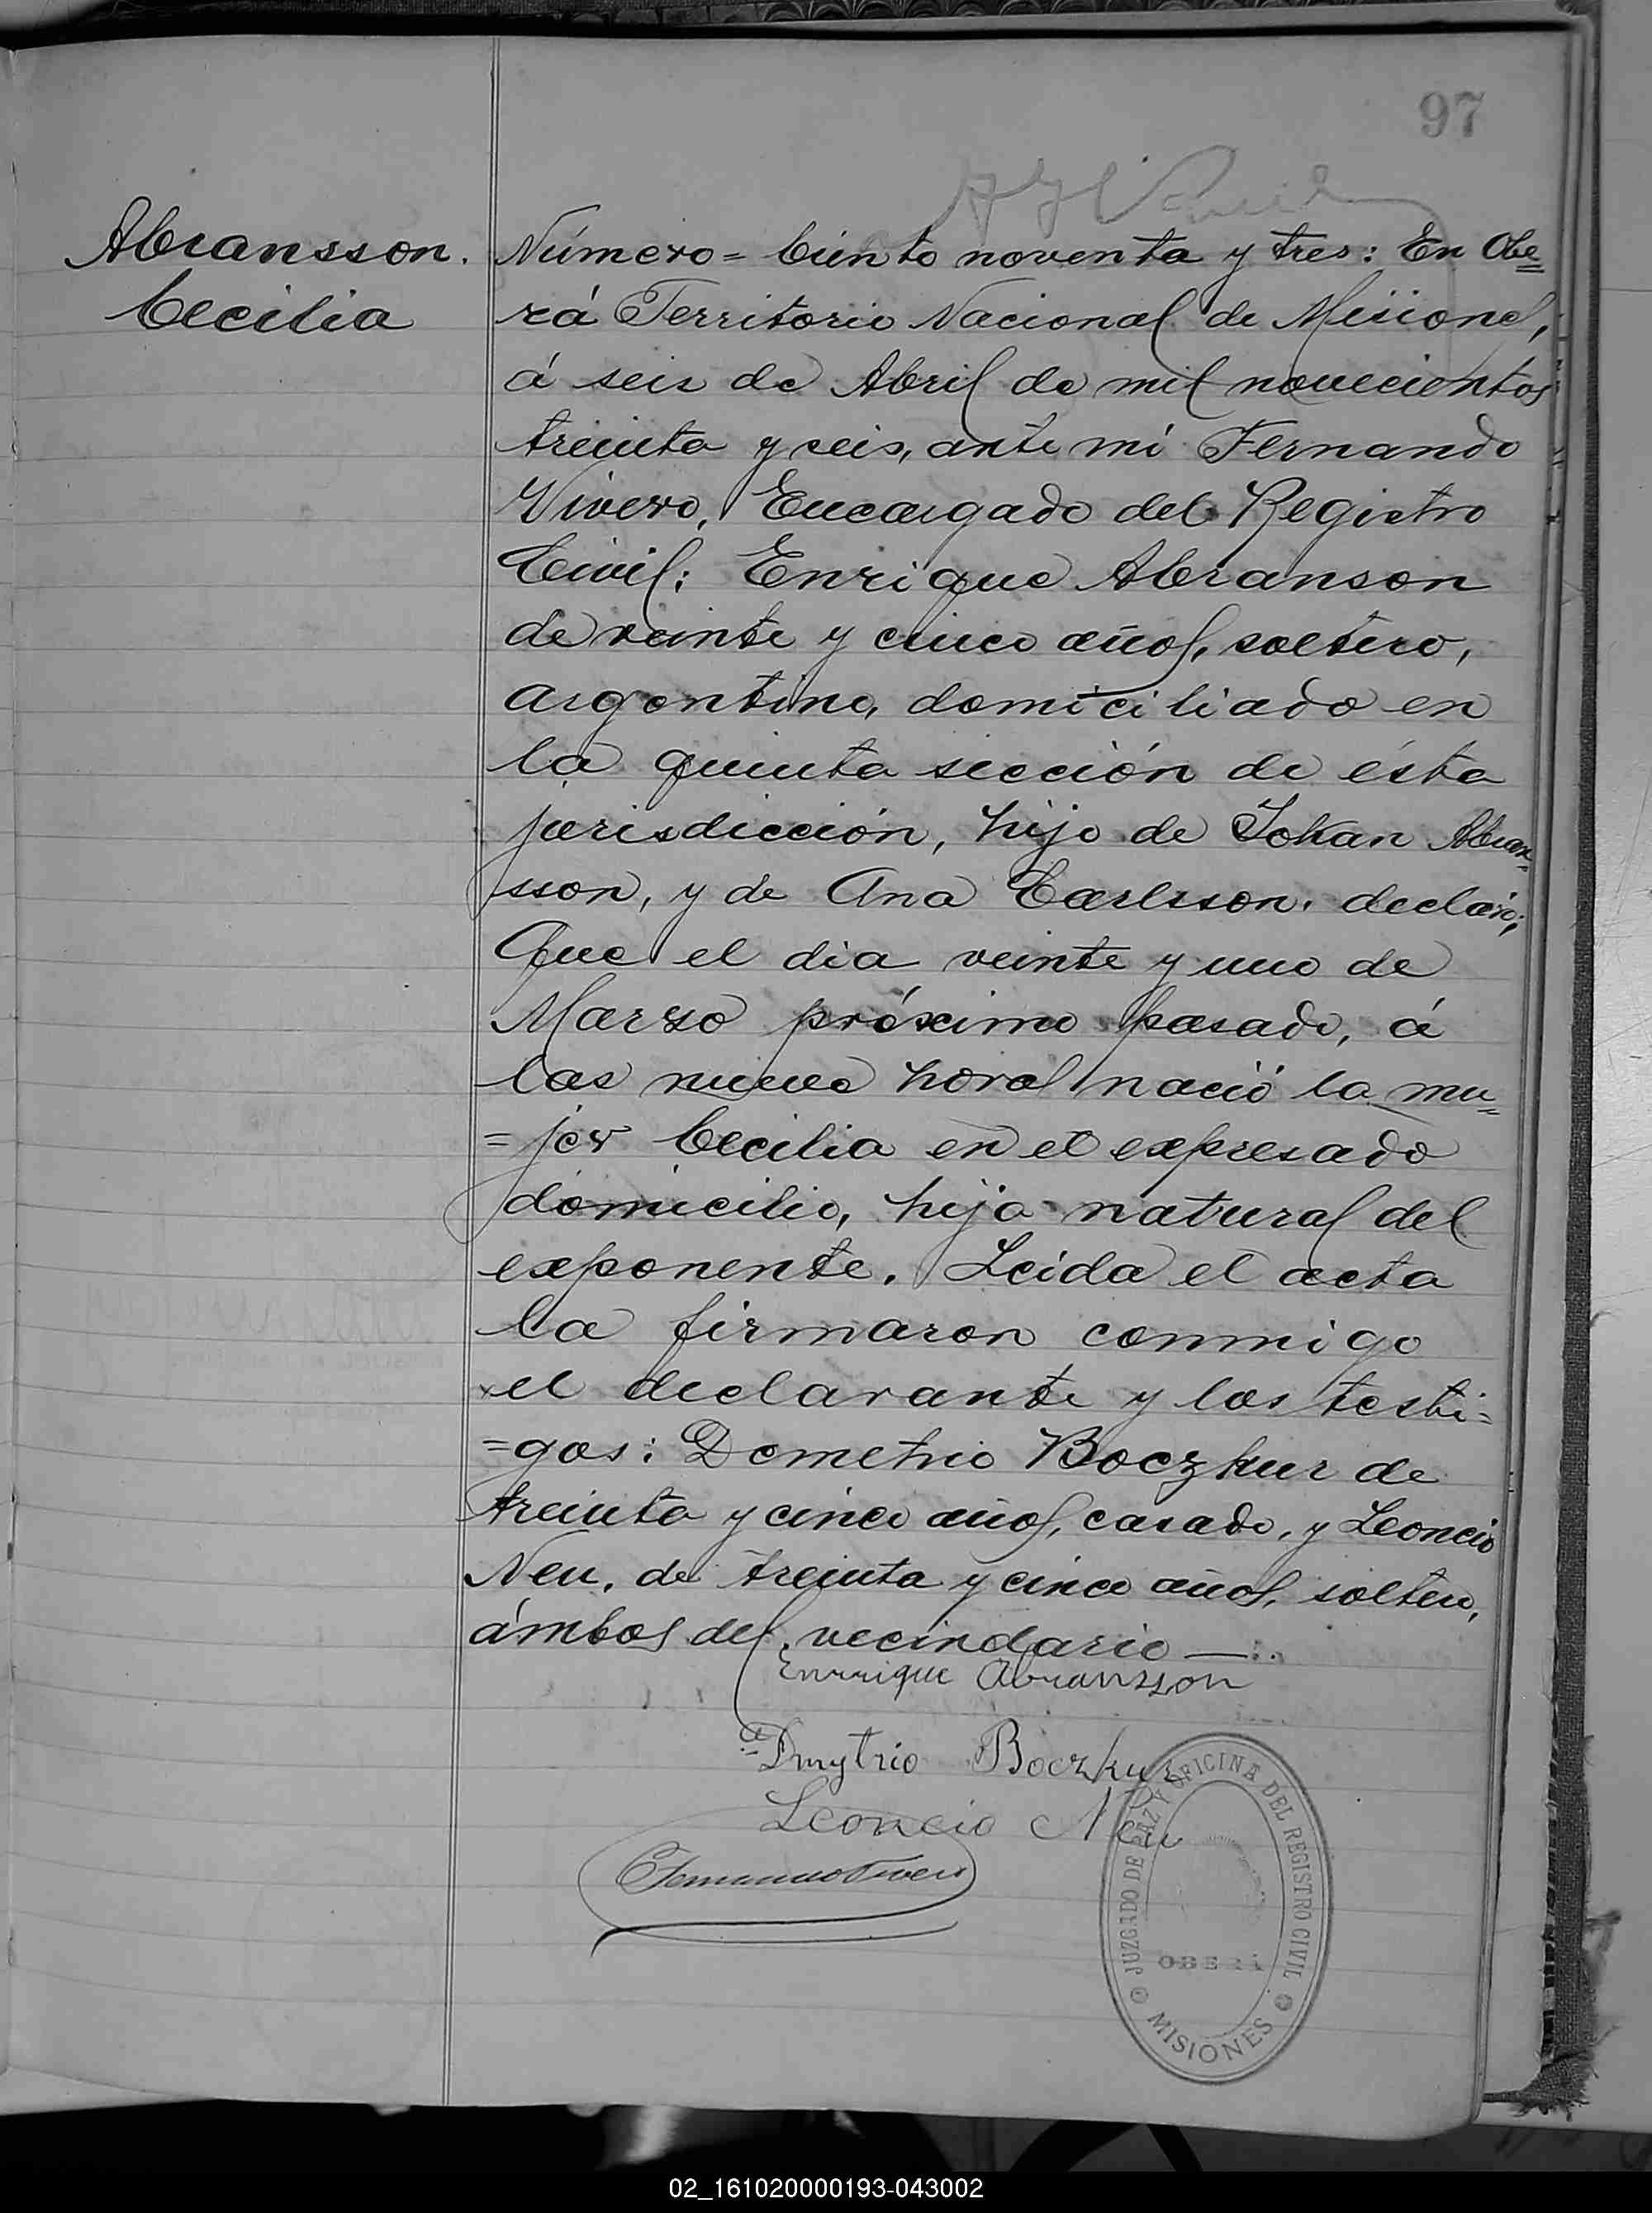 97
Abransson.
Cecilia
Número = Ciento noventa y tres: En Obe=
rá Territorio Nacional de Misiones,
á seis de Abril de mil novecientos
treinta y seis, ante mí Fernando
Vivero, Encargado del Registro
Civil: Enrique Abranson
de veinte y cinco años, soltero,
argentino, domiciliado en
la quinta sección de ésta
jurisdicción, hijo de Johan Abran=
sson, y de Ana Carlsson. declaró;
Que el dia veinte y uno de
Marzo próximo pasado, á
las nueve horas nació la mu=
=jer Cecilia en el expresado
domicilio, hija natural del
exponente. Leida el acta
la firmaron conmigo
el declarante y los testi=
=gos: Demetrio Boczkur de
treinta y cinco años, casado, y Leoncio
Neu, de treinta y cinco años, soltero,
ámbos del vecindario —..
Enrrique Abransson
Dmytrio Boczkur
Leoncio Neu
Fernando Vivero
JUZGADO DE PAZ Y OFICINA DEL REGISTRO CIVIL
OBERÁ
MISIONES
02_161020000193-043002